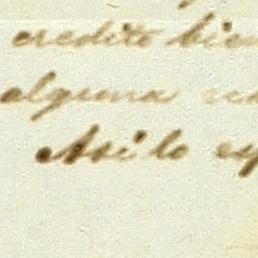 credito bien
alguna
Asi lo